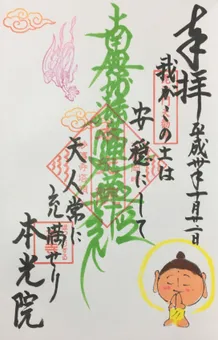 奉拝
平成卅年一月廿一日
我がこの土は
安穏にして
南無妙法蓮華経
天人常に
充満せり
本光院